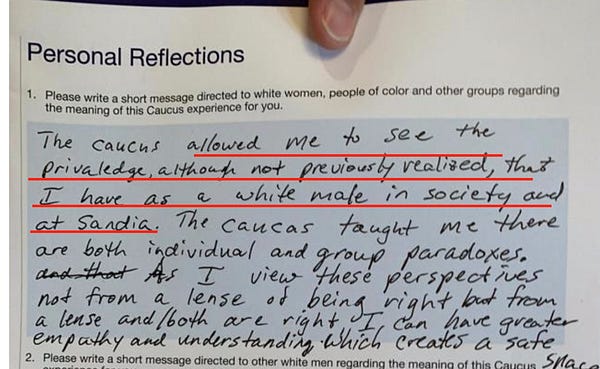 Personal Reflections
1. Please write a short message directed to white women, people of color and other groups regarding
the meaning of this Caucus experience for you.
The caucus allowed me to see the
privaledge, although not previously realized, that
I have as a white male in society and
at Sandia. The caucas taught me there
are both individual and group paradoxes.
and that As I view these perspectives
not from a lense of being right but from
a lense and/both are right I can have greater
empathy and understanding which creates a safe
space
2. Please write a short message directed to other white men regarding the meaning of this Caucus